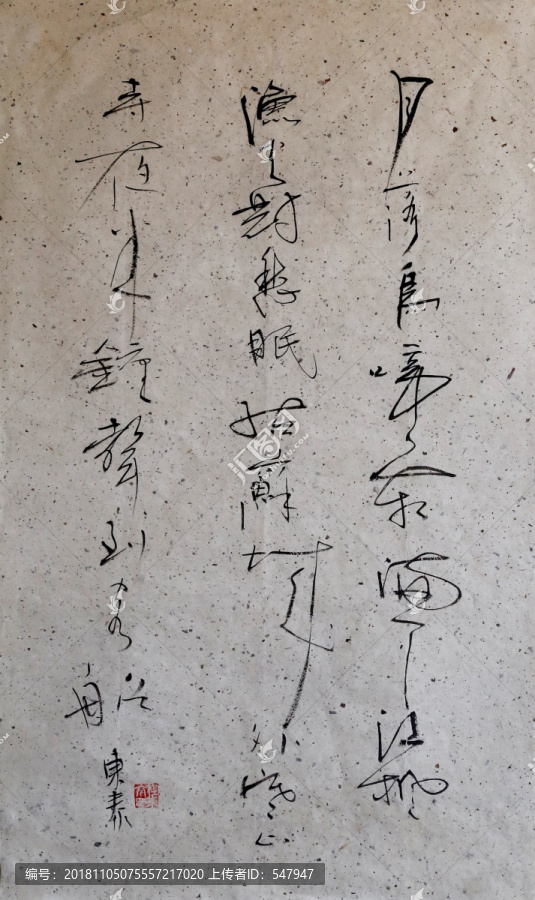 月落烏啼霜滿天江楓
漁火對愁眠姑蘇城外寒山
寺夜半鐘聲到客船
東泰
汇图网
编号：20181105075557217020 上传者ID：547947